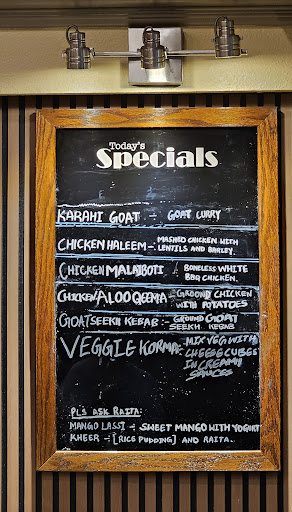 Today's
Specials
KARAHI GOAT - GOAT CURRY
CHICKEN HALEEM - MASHED CHICKEN WITH
LENTILS AND BARLEY.
CHICKEN MALAIBOTI - BONELESS WHITE
BBQ CHICKEN.
CHICKEN/ALOO QEEMA - GROUND CHICKEN
WITH POTATOES
GOAT SEEKH KEBAB - GROUND GOAT
SEEKH KEBAB
VEGGIE KORMA: MIX VEG WITH
CHEESE CUBES
IN CREAMY
SAUCES
PLS ASK RAITA:
MANGO LASSI - SWEET MANGO WITH YOGURT
KHEER - [RICE PUDDING] AND RAITA.